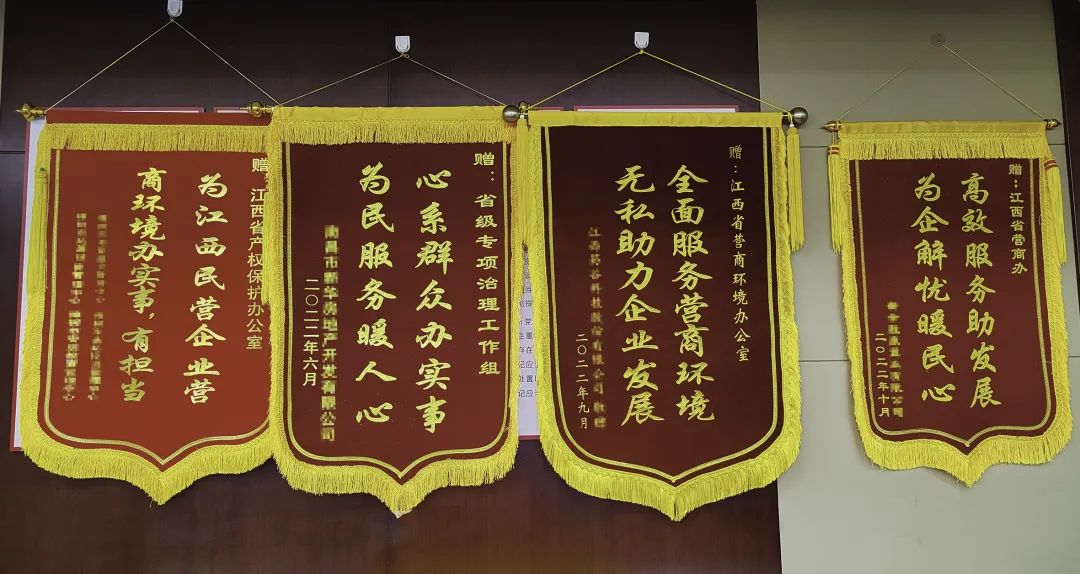 赠：江西省产权保护办公室
为江西民营企业营
商环境办实事，有担当
赠：省级专项治理工作组
心系群众办实事
为民服务暖人心
房地产开发有限公司
二〇二二年六月
赠：江西省营商环境办公室
全面服务营商环境
无私助力企业发展
二〇二二年九月
赠：江西省营商办
高效服务助发展
为企解忧暖民心
二〇二二年十月